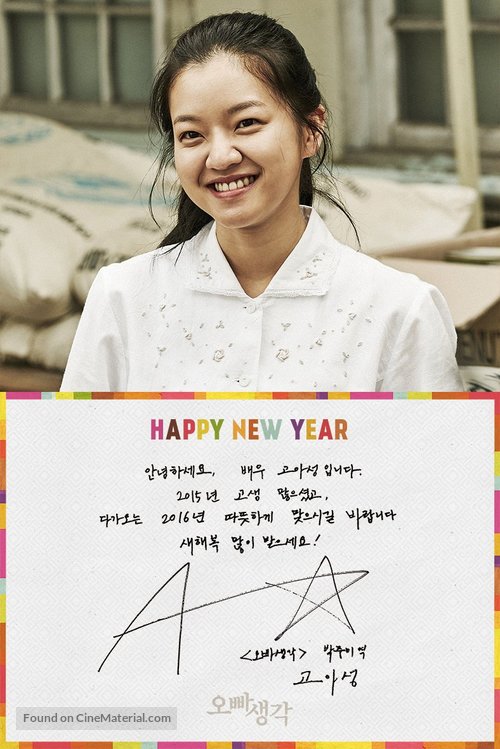 HAPPY NEW YEAR
안녕하세요, 배우 고아성입니다.
2015년 고생 많으셨고,
다가오는 2016년 따뜻하게 맞으시길 바랍니다
새해복 많이 받으세요!
<오빠생각> 박주미 역
고아성
오빠생각
Found on CineMaterial.com